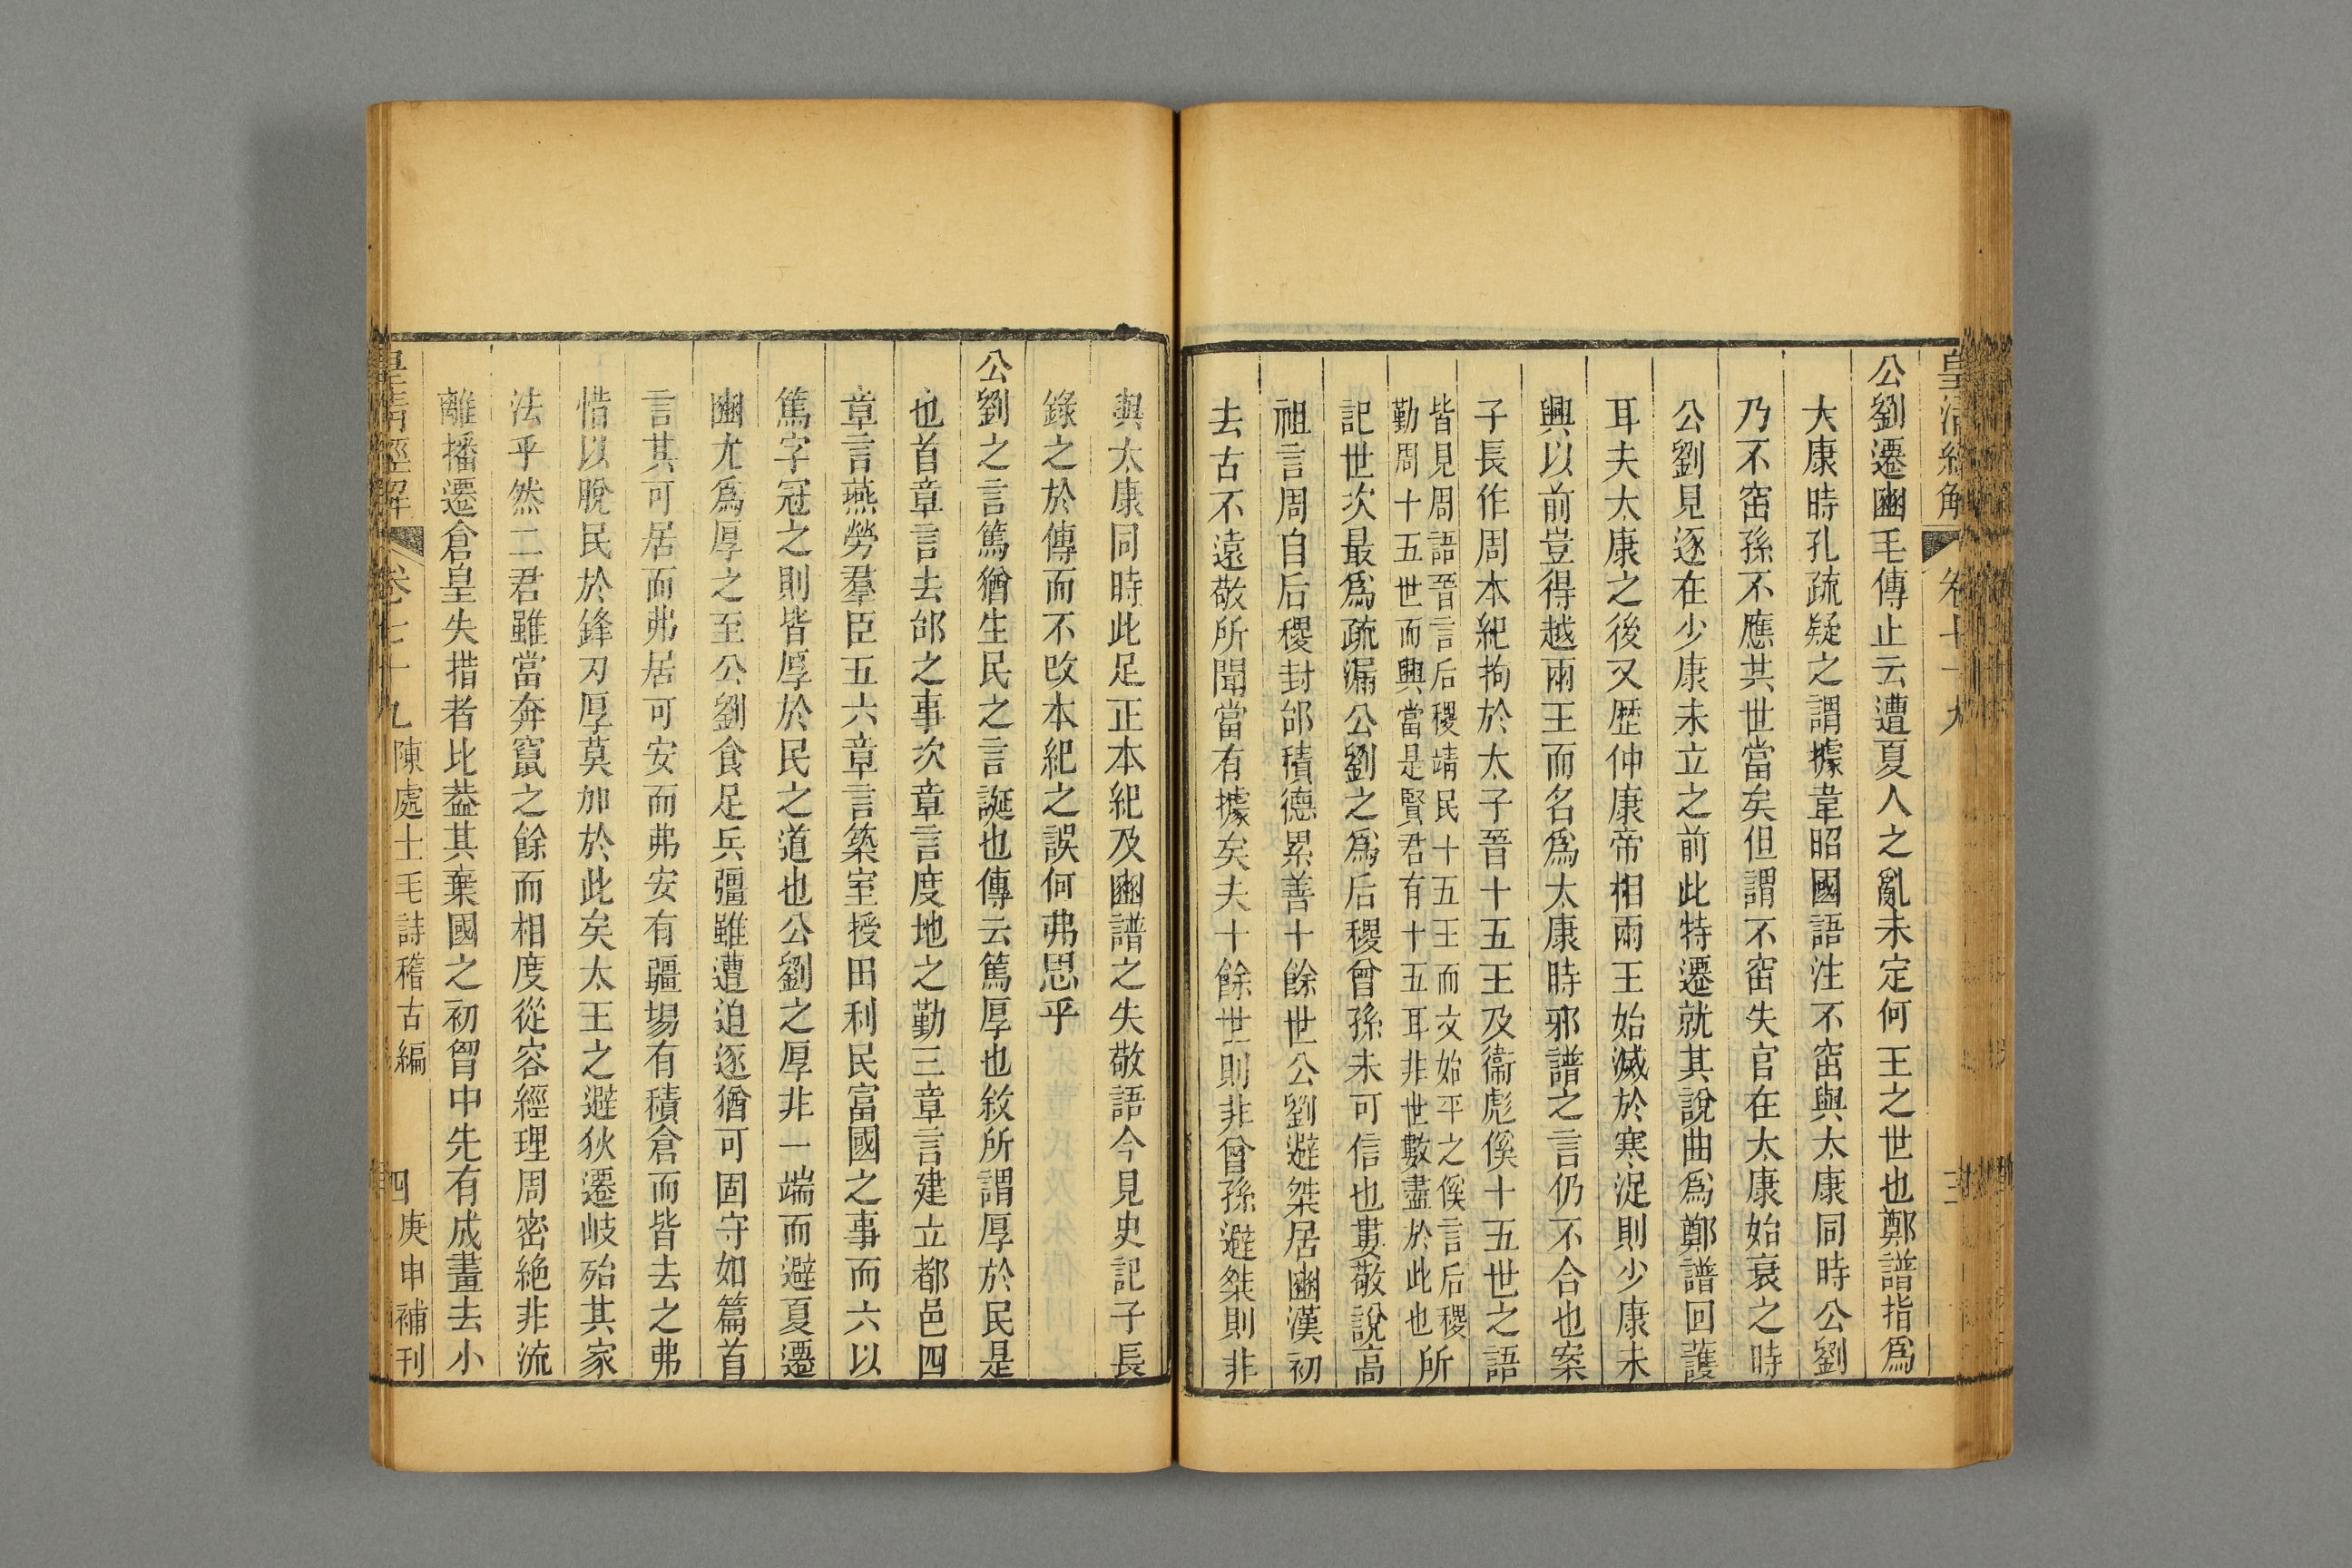 公劉遷豳毛傳止云遭夏人之亂未定何王之世也鄭譜指爲
大康時孔疏疑之謂據韋昭國語注不窋與太康同時公劉
乃不窋孫不應共世當矣但謂不窋失官在太康始衰之時
公劉見逐在少康未立之前此特遷就其說曲爲鄭譜回護
耳夫太康之後又歷仲康帝相兩王始滅於寒浞則少康未
興以前豈得越兩王而名爲太康時邪譜之言仍不合也案
子長作周本紀拘於太子晉十五王及衞彪傒十五世之語
皆見周語晉言后稷靖民十五王而文始平之傒言后稷
勤周十五世而興當是賢君有十五耳非世數盡於此也所
記世次最爲疏漏公劉之爲后稷曾孫未可信也婁敬說高
祖言周自后稷封邰積德累善十餘世公劉避桀居豳漢初
去古不遠敬所聞當有據矣夫十餘世則非曾孫避桀則非
與太康同時此足正本紀及豳譜之失敬語今見史記子長
錄之於傳而不改本紀之誤何弗思乎
公劉之言篤猶生民之言誕也傳云篤厚也敘所謂厚於民是
也首章言去邰之事次章言度地之勤三章言建立都邑四
章言燕勞羣臣五六章言築室授田利民富國之事而六以
篤字冠之則皆厚於民之道也公劉之厚非一端而避夏遷
豳尤爲厚之至公劉食足兵彊雖遭迫逐猶可固守如篇首
言其可居而弗居可安而弗安有疆埸有積倉而皆去之弗
惜以脫民於鋒刃厚莫加於此矣太王之避狄遷岐殆其家
法乎然二君雖當奔竄之餘而相度從容經理周密絶非流
離播遷倉皇失措者比葢其棄國之初智中先有成畫去小
皇清經解 卷七十九 陳處士毛詩稽古編 四 庚申補刊